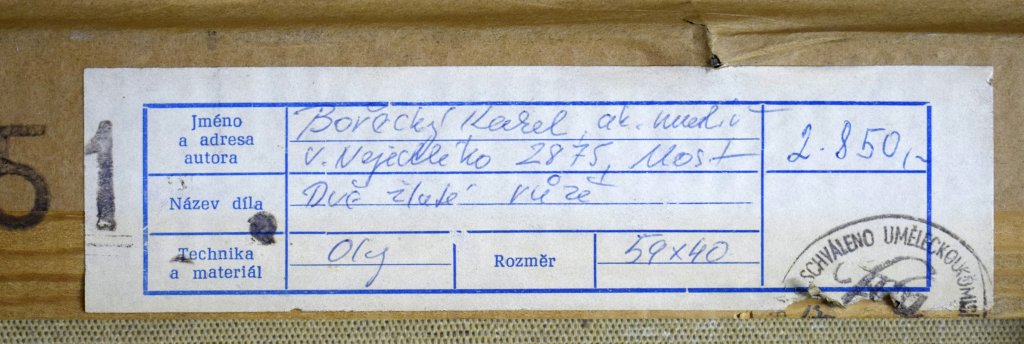 51
Jméno
a adresa
autora
Bořácký Karel, ak. malíř
V. Nejedlého 2875, Most
2.850,-
Název díla
Dvě zlaté růže
Technika
a materiál
Olej
Rozměr
59x40
SCHVÁLENO UMĚLECKOU KOMISÍ